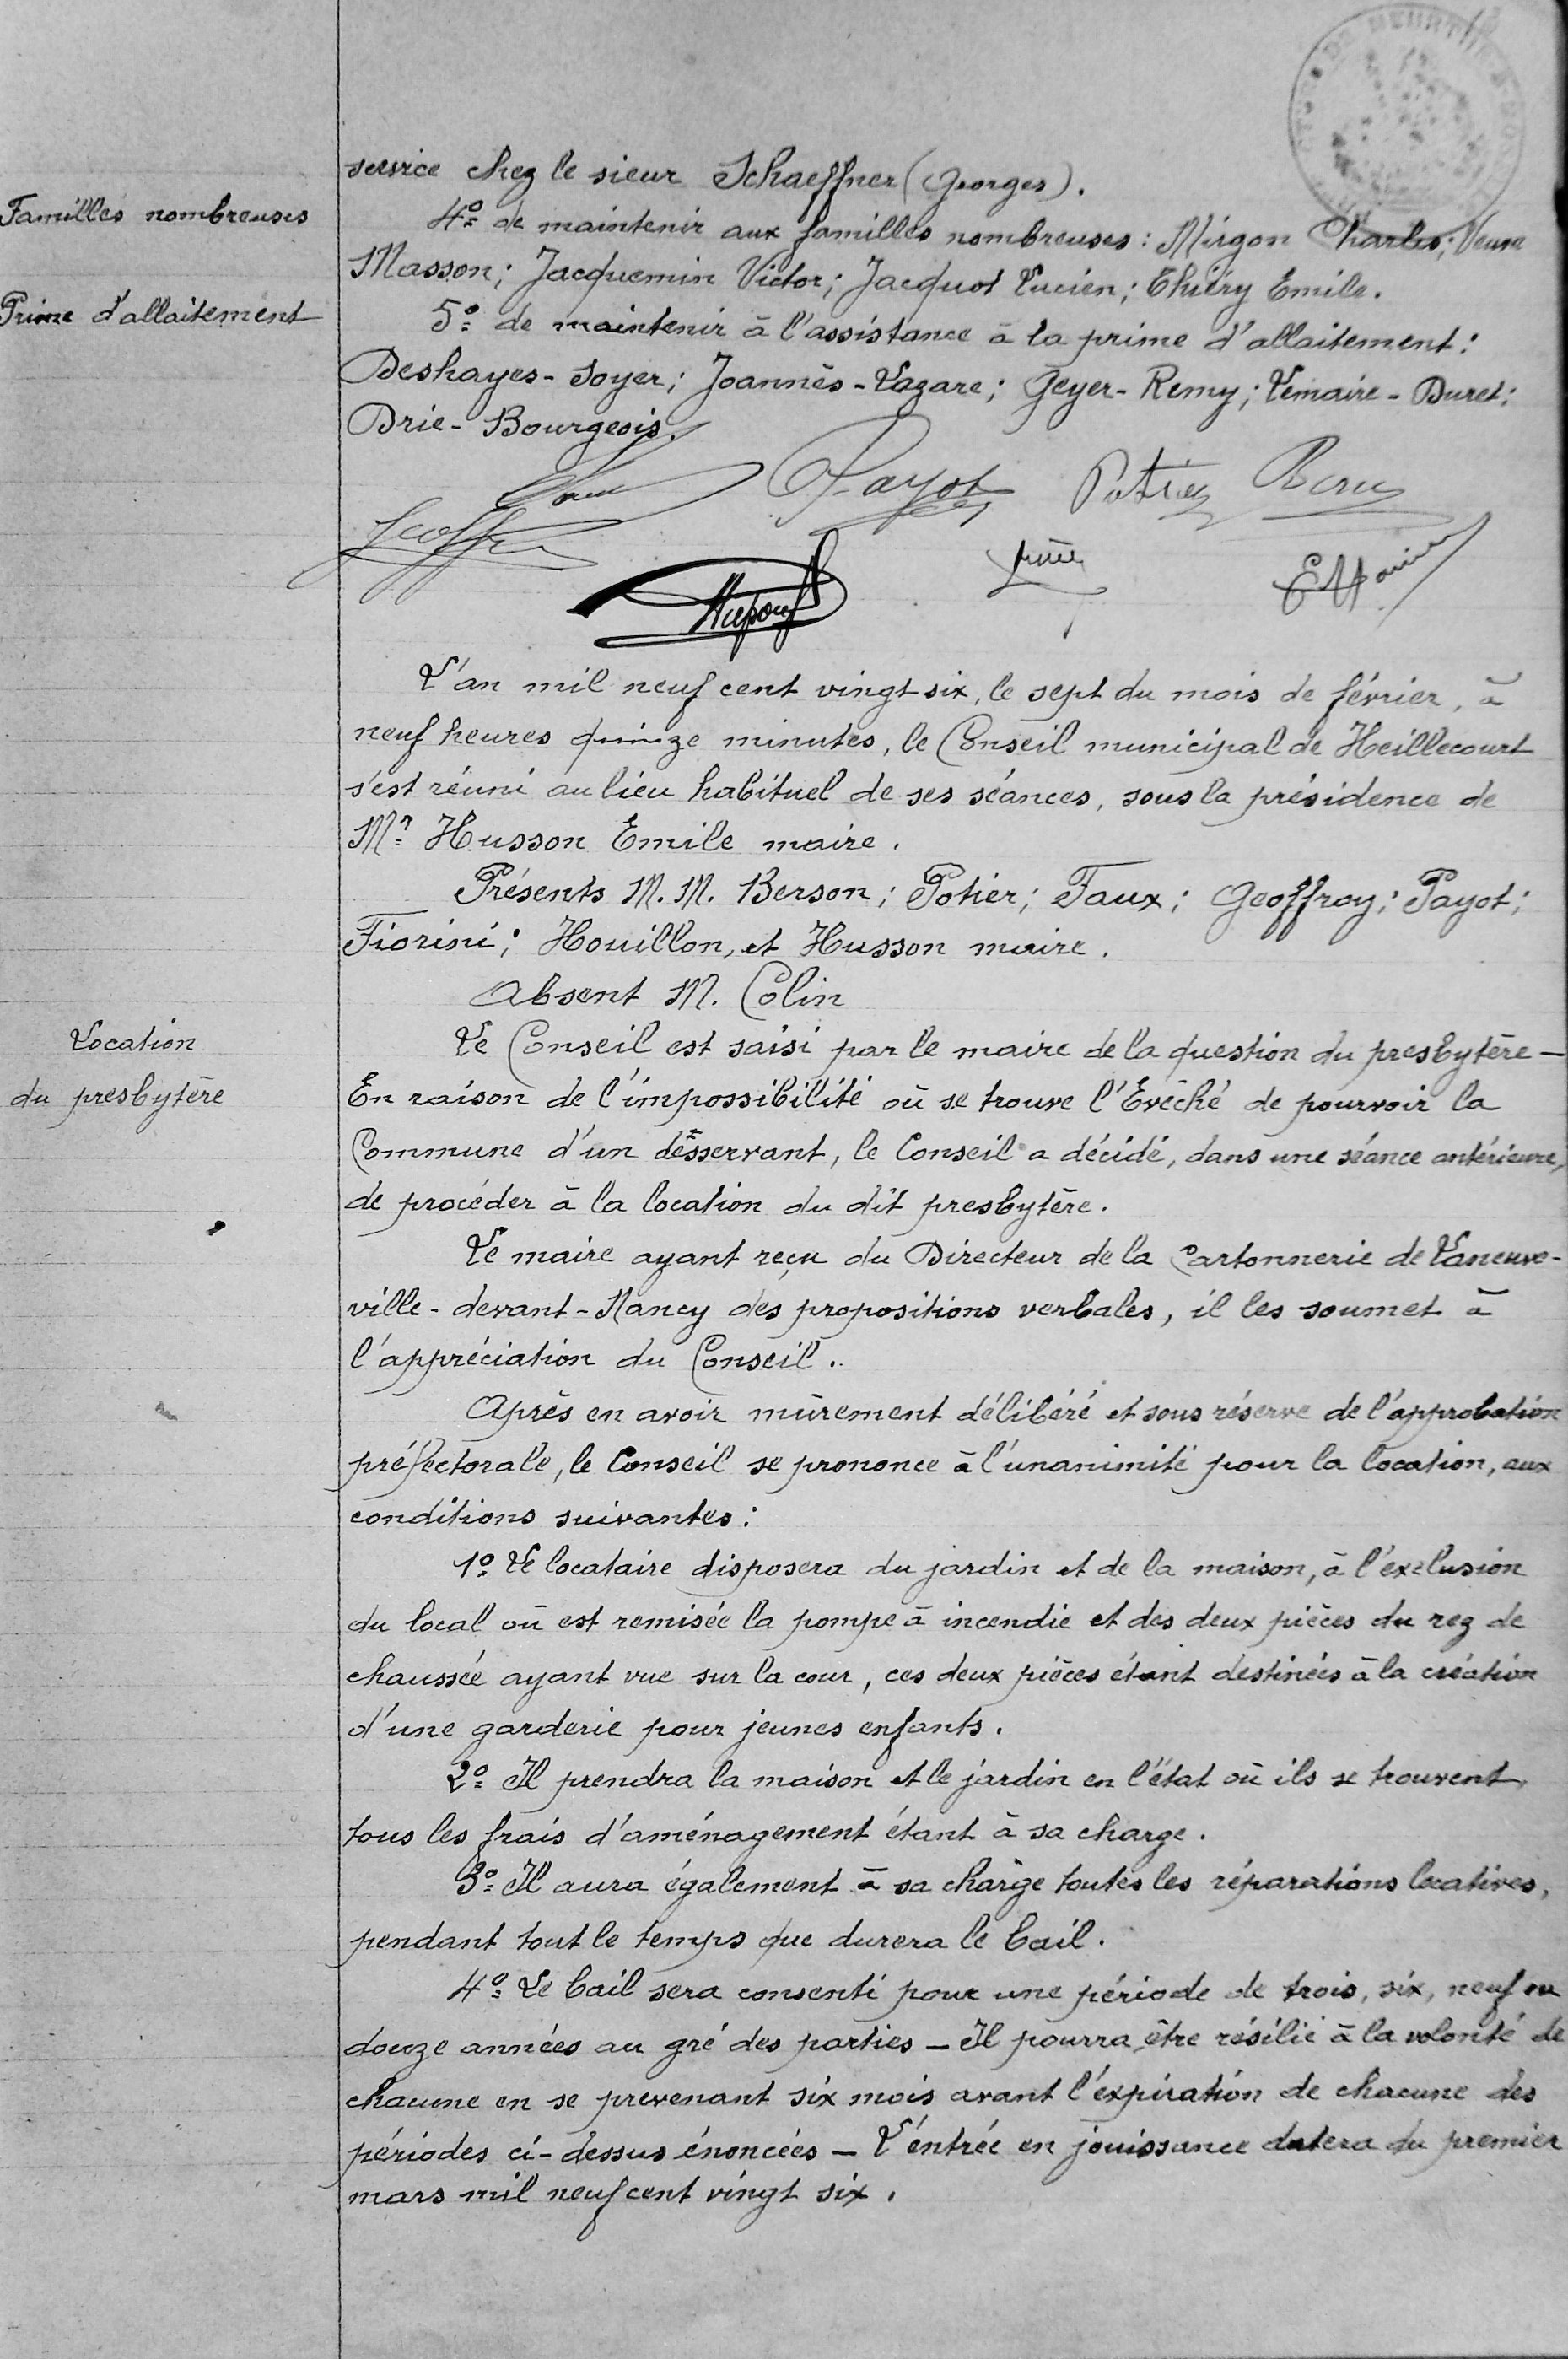 service chez le sieur Schaeffner (Georges).
Familles nombreuses
4º de maintenir aux familles nombreuses: Mirgon Charles; Veuve
Masson; Jacquemin Victor; Jacquot Lucien; Thiéry Emile.
Prime d'allaitement
5º de maintenir à l'assistance à la prime d'allaitement:
Deshayes-Soyer; Joannès-Lazare; Geyer-Remy; Lemaire-Duret;
Drie-Bourgeois.
Payot Potier
L'an mil neuf cent vingt six, le sept du mois de février, à
neuf heures quinze minutes, le Conseil municipal de Heillecourt
s'est réuni au lieu habituel de ses séances, sous la présidence de
Mr Husson Emile maire.
Présents M.M. Berson; Potier; Faux; Geoffroy; Payot;
Fiorini; Houillon, et Husson maire.
Absent M. Colin
Location
du presbytère
Le Conseil est saisi par le maire de la question du presbytère—
En raison de l'impossibilité où se trouve l'Evêché de pourvoir la
Commune d'un desservant, le Conseil a décidé, dans une séance antérieure,
de procéder à la location du dit presbytère.
Le maire ayant reçu du Directeur de la Cartonnerie de Laneuve-
ville-devant-Nancy des propositions verbales, il les soumet à
l'appréciation du Conseil.
Après en avoir mûrement délibéré et sous réserve de l'approbation
préfectorale, le Conseil se prononce à l'unanimité pour la location, aux
conditions suivantes:
1º Le locataire disposera du jardin et de la maison, à l'exclusion
du local où est remisée la pompe à incendie et des deux pièces du rez de
chaussée ayant vue sur la cour, ces deux pièces étant destinées à la création
d'une garderie pour jeunes enfants.
2º Il prendra la maison et le jardin en l'état où ils se trouvent,
tous les frais d'aménagement étant à sa charge.
3º Il aura également à sa charge toutes les réparations locatives,
pendant tout le temps que durera le bail.
4º Le bail sera consenti pour une période de trois, six, neuf ou
douze années au gré des parties — Il pourra être résilié à la volonté de
chacune en se prevenant six mois avant l'expiration de chacune des
périodes ci-dessus énoncées — L'entrée en jouissance datera du premier
mars mil neuf cent vingt six.